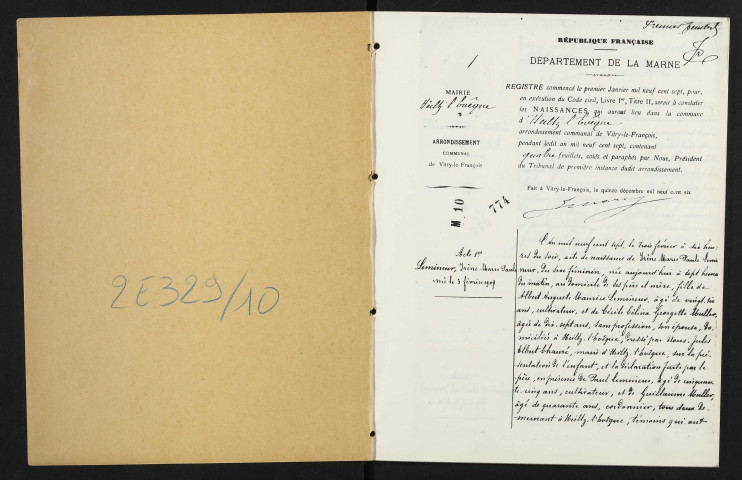 2E329/10
Premier feuillet
1
RÉPUBLIQUE FRANÇAISE
DÉPARTEMENT DE LA MARNE
MAIRIE
Heiltz l'Evêque
ARRONDISSEMENT
COMMUNAL
de Vitry-le-François
REGISTRE commencé le premier Janvier mil neuf cent sept, pour,
en exécution du Code civil, Livre Ier, Titre II, servir à constater
les NAISSANCES qui auront lieu dans la commune
d'Heiltz l'Evêque
arrondissement communal de Vitry-le-François,
pendant ledit an mil neuf cent sept, contenant
quatre feuillets, cotés et paraphés par Nous, Président
du Tribunal de première instance dudit arrondissement.
Fait à Vitry-le-François, le quinze décembre mil neuf cent six
M 10
774
Acte 1er
Lemineur, Irène Marie Paule
née le 3 février 1907
L'an mil neuf cent sept, le trois février à six heu-
res du soir, acte de naissance de Irène Marie Paule Lemi-
neur, du sexe féminin, née aujourd'hui à sept heures
du matin, au domicile de ses père et mère, fille de
Albert Auguste Maurice Lemineur, âgé de vingt-six
ans, cultivateur, et de Cécile Célina Georgette Muller,
âgée de dix-sept ans, sans profession, son épouse, do-
miciliés à Heiltz-l'Evêque, dressé par Nous, Jules
Albert Chauré, maire d'Heiltz-l'Evêque, sur la pré-
sentation de l'enfant, et la déclaration faite par le
père, en présence de Paul Lemineur, âgé de cinquan-
te-cinq ans, cultivateur, et de Guillaume Muller,
âgé de quarante ans, cordonnier, tous deux de-
meurant à Heiltz-l'Evêque, témoins qui ont